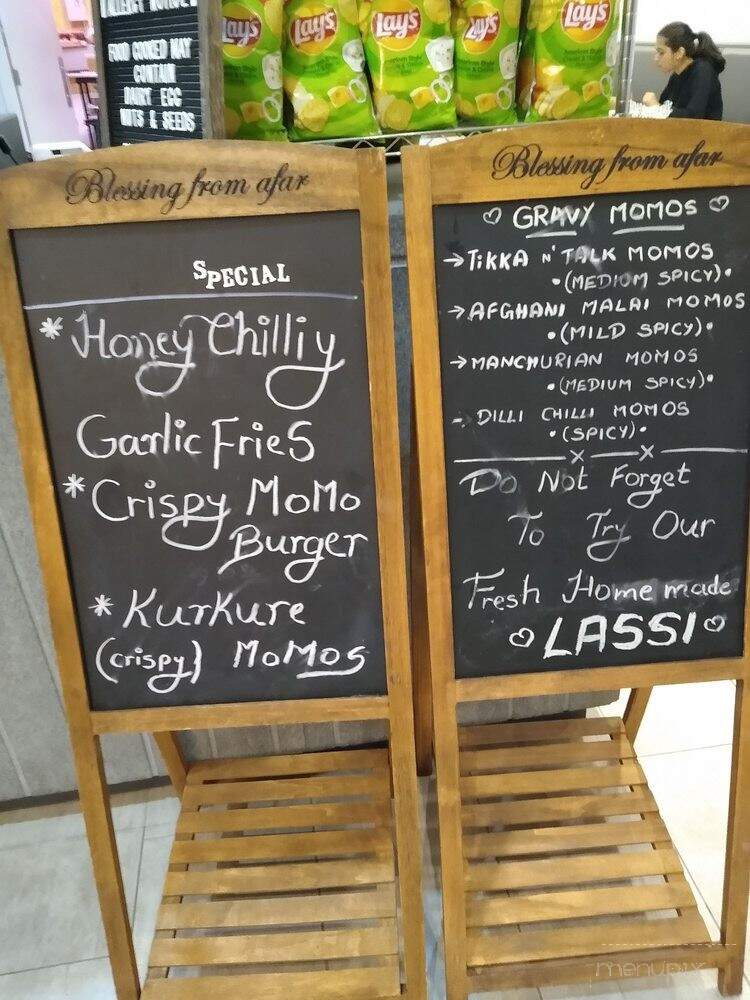 FOOD COOKED MAY
CONTAIN
DAIRY EGG
NUTS & SEEDS
Lay's
Lay's
Lay's
Lay's
Lay's
American Style
Blessing from afar
SPECIAL
* Honey Chilliy
Garlic Fries
* Crispy MoMo
Burger
* Kurkure
(crispy) MoMos
Blessing from afar
♡ GRAVY MOMOS ♡
→ TIKKA N' TALK MOMOS
•(MEDIUM SPICY)•
→ AFGHANI MALAI MOMOS
•(MILD SPICY)•
→ MANCHURIAN MOMOS
•(MEDIUM SPICY)•
- DILLI CHILLI MOMOS
•(SPICY)•
Do Not Forget
To Try Our
Fresh Home made
♡ LASSI ♡
menupix